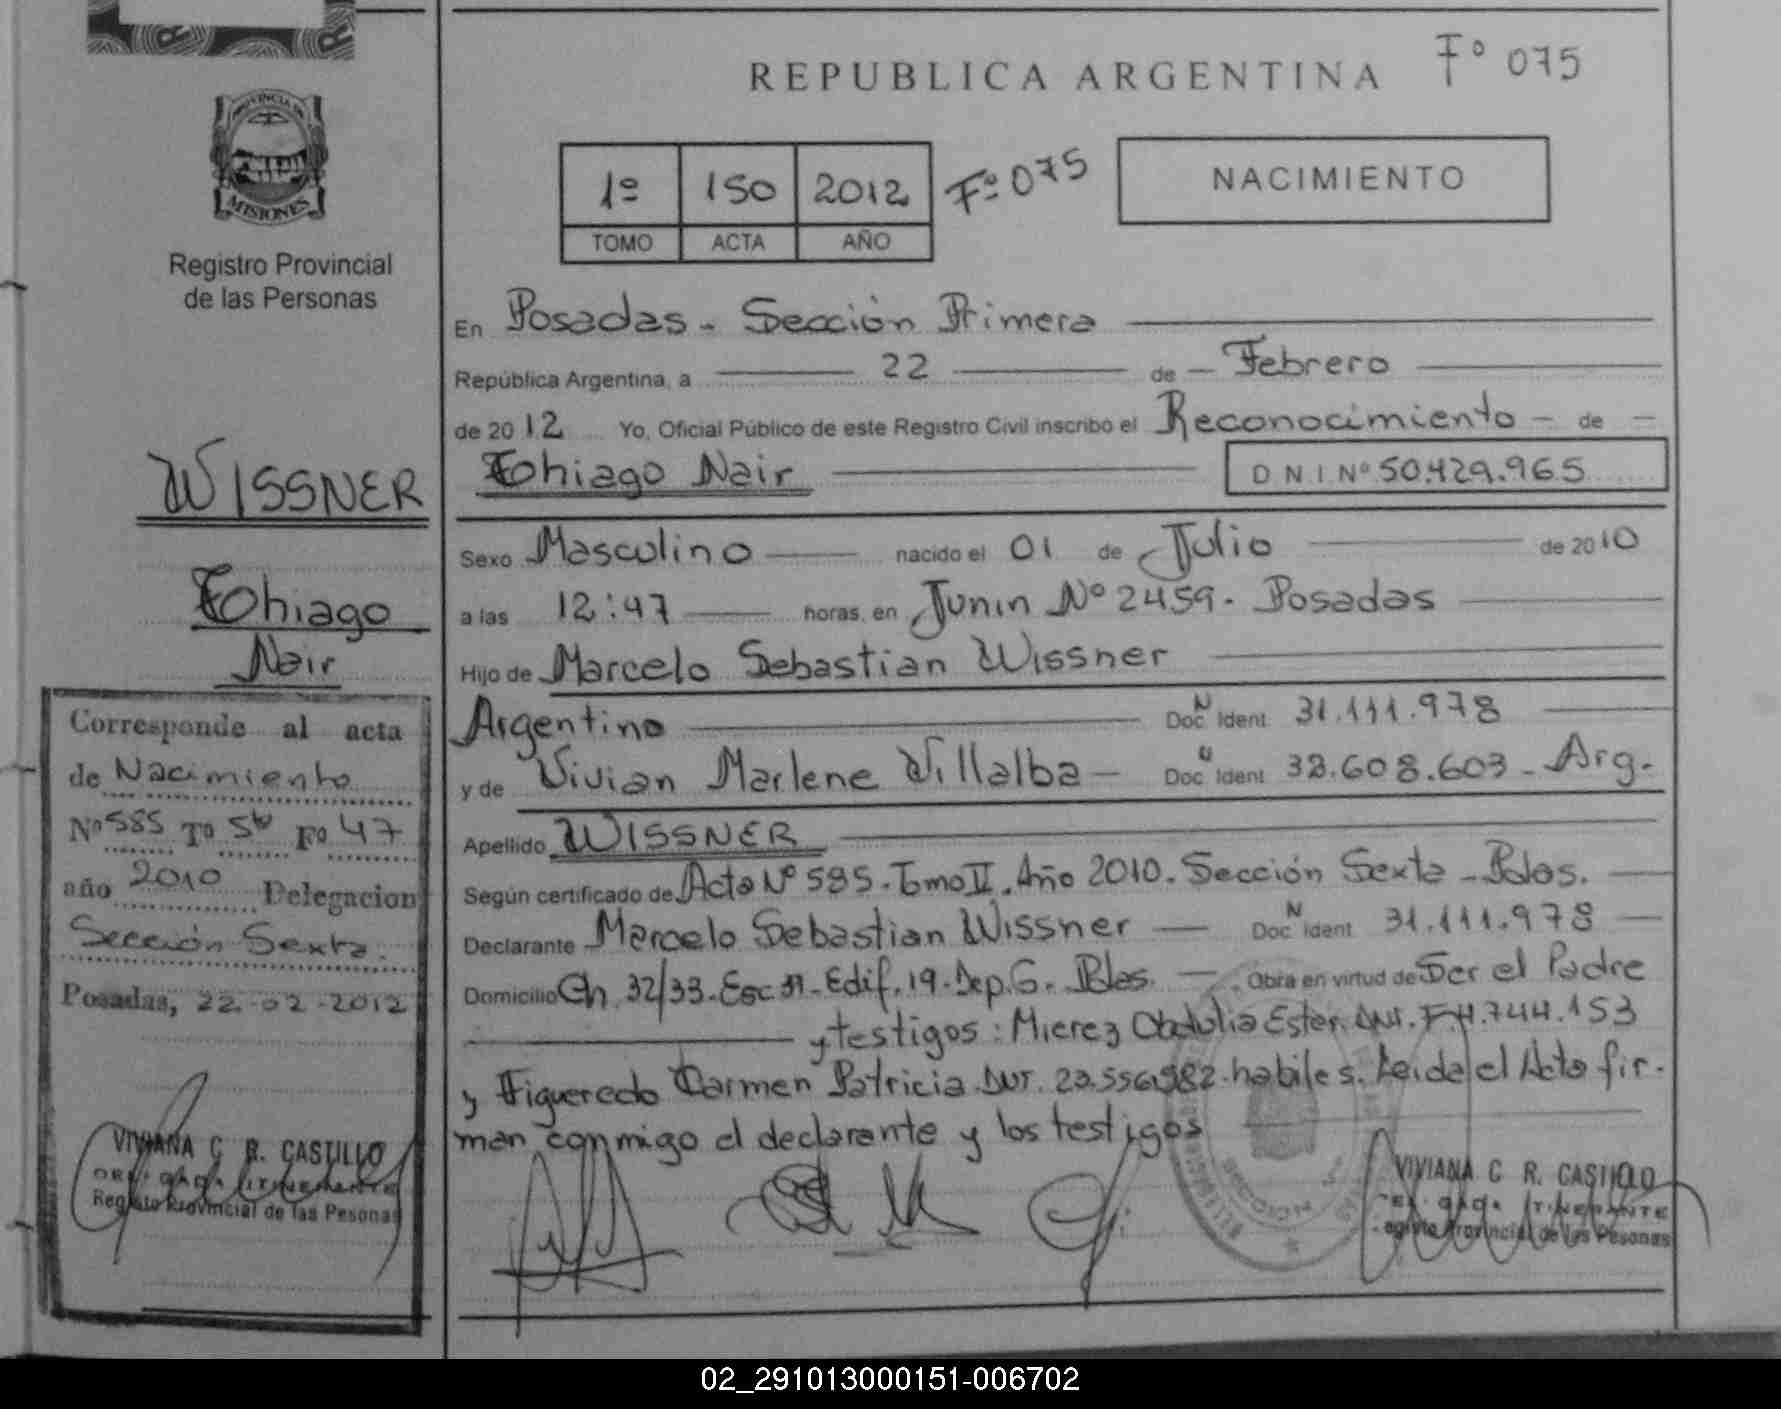 REPUBLICA ARGENTINA Fº 075
PROVINCIA DE
MISIONES
Registro Provincial
de las Personas
1º 150 2012 Fº 075
TOMO ACTA AÑO
NACIMIENTO
En Posadas - Sección Primera
República Argentina, a 22 de Febrero
de 2012 Yo, Oficial Público de este Registro Civil inscribo el Reconocimiento - de
Thiago Nair D N I Nº 50.429.965
Sexo Masculino nacido el 01 de Julio de 2010
a las 12:47 horas, en Junin Nº 2459 - Posadas
Hijo de Marcelo Sebastian Wissner
Argentino Doc. Ident. 31.111.978
y de Vivian Marlene Villalba - Doc. Ident. 38.608.603 - Arg.
Apellido WISSNER
Según certificado de Acta Nº 585. Tomo II. Año 2010. Sección Sexta - Pdas.
Declarante Marcelo Sebastian Wissner Doc. Ident. 31.111.978
Domicilio Ch. 32/33. Esc 31. Edif. 19. Dep. G. Pdas. Obra en virtud de Ser el Padre
y testigos: Mierez Obdulia Ester. DNI. F 4.744.153
y Figueredo Carmen Patricia DNI. 23.556.982 habiles. Leida el Acta fir-
man conmigo el declarante y los testigos
VIVIANA C R. CASTILLO
ITINERANTE
Provincial de las Pesonas
WISSNER
Thiago
Nair
Corresponde al acta
de Nacimiento
Nº 585 Tº Fº 47
año 2010 Delegacion
Sección Sexta
Posadas, 22-02-2012
VIVIANA C R. CASTILLO
ITINERANTE
Registro Provincial de las Pesonas
02_291013000151-006702